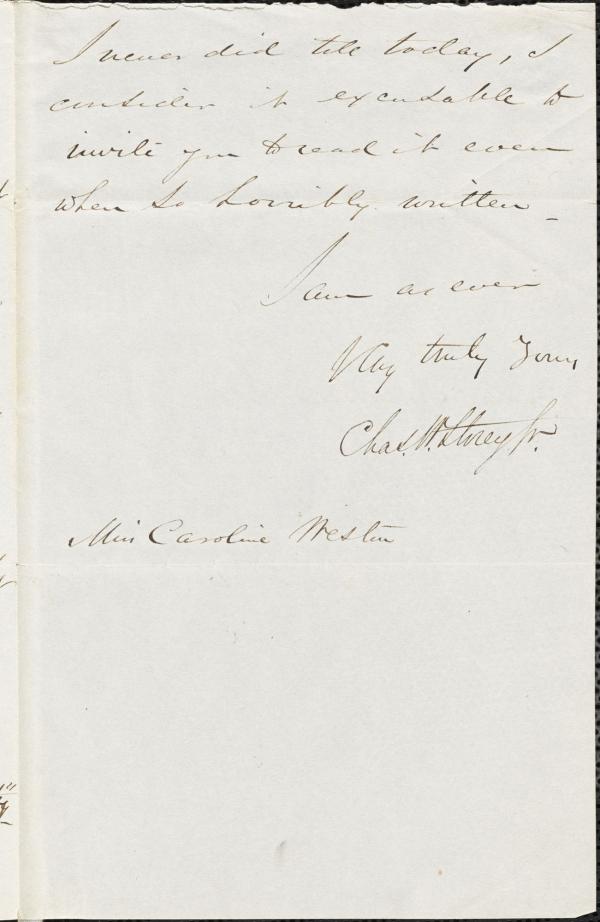 I never did till today, I
consider it excusable to
invite you to read it even
when so horribly written _
I am as ever
Very truly Yours,
Chas. W. Storey Jr.
Miss Caroline Weston